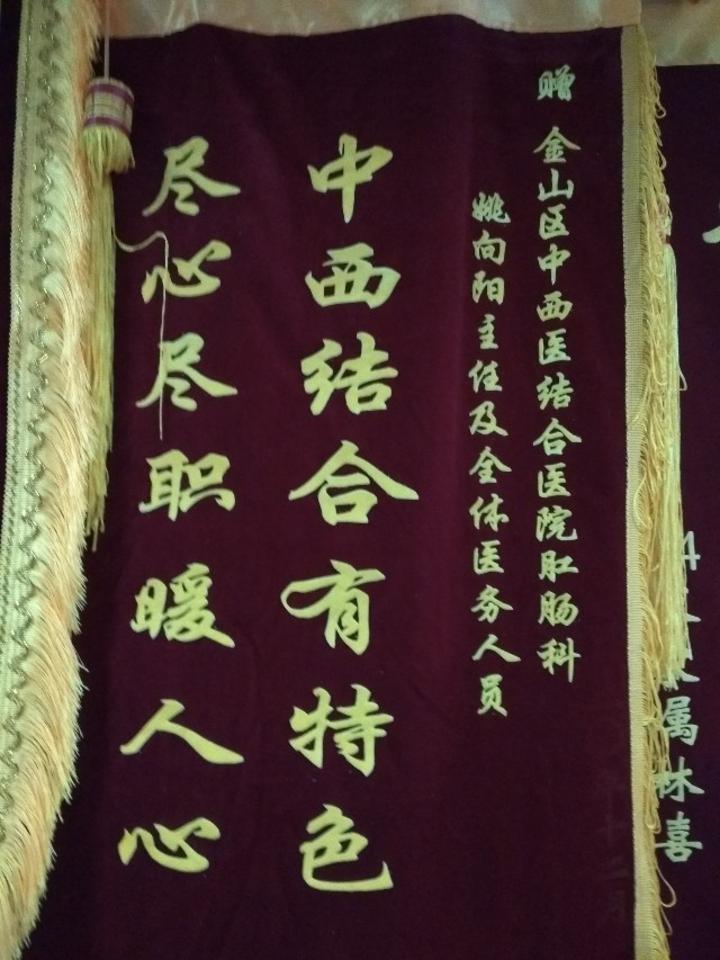 赠 金山区中西医结合医院肛肠科
姚向阳主任及全体医务人员
中西结合有特色
尽心尽职暖人心
属林喜